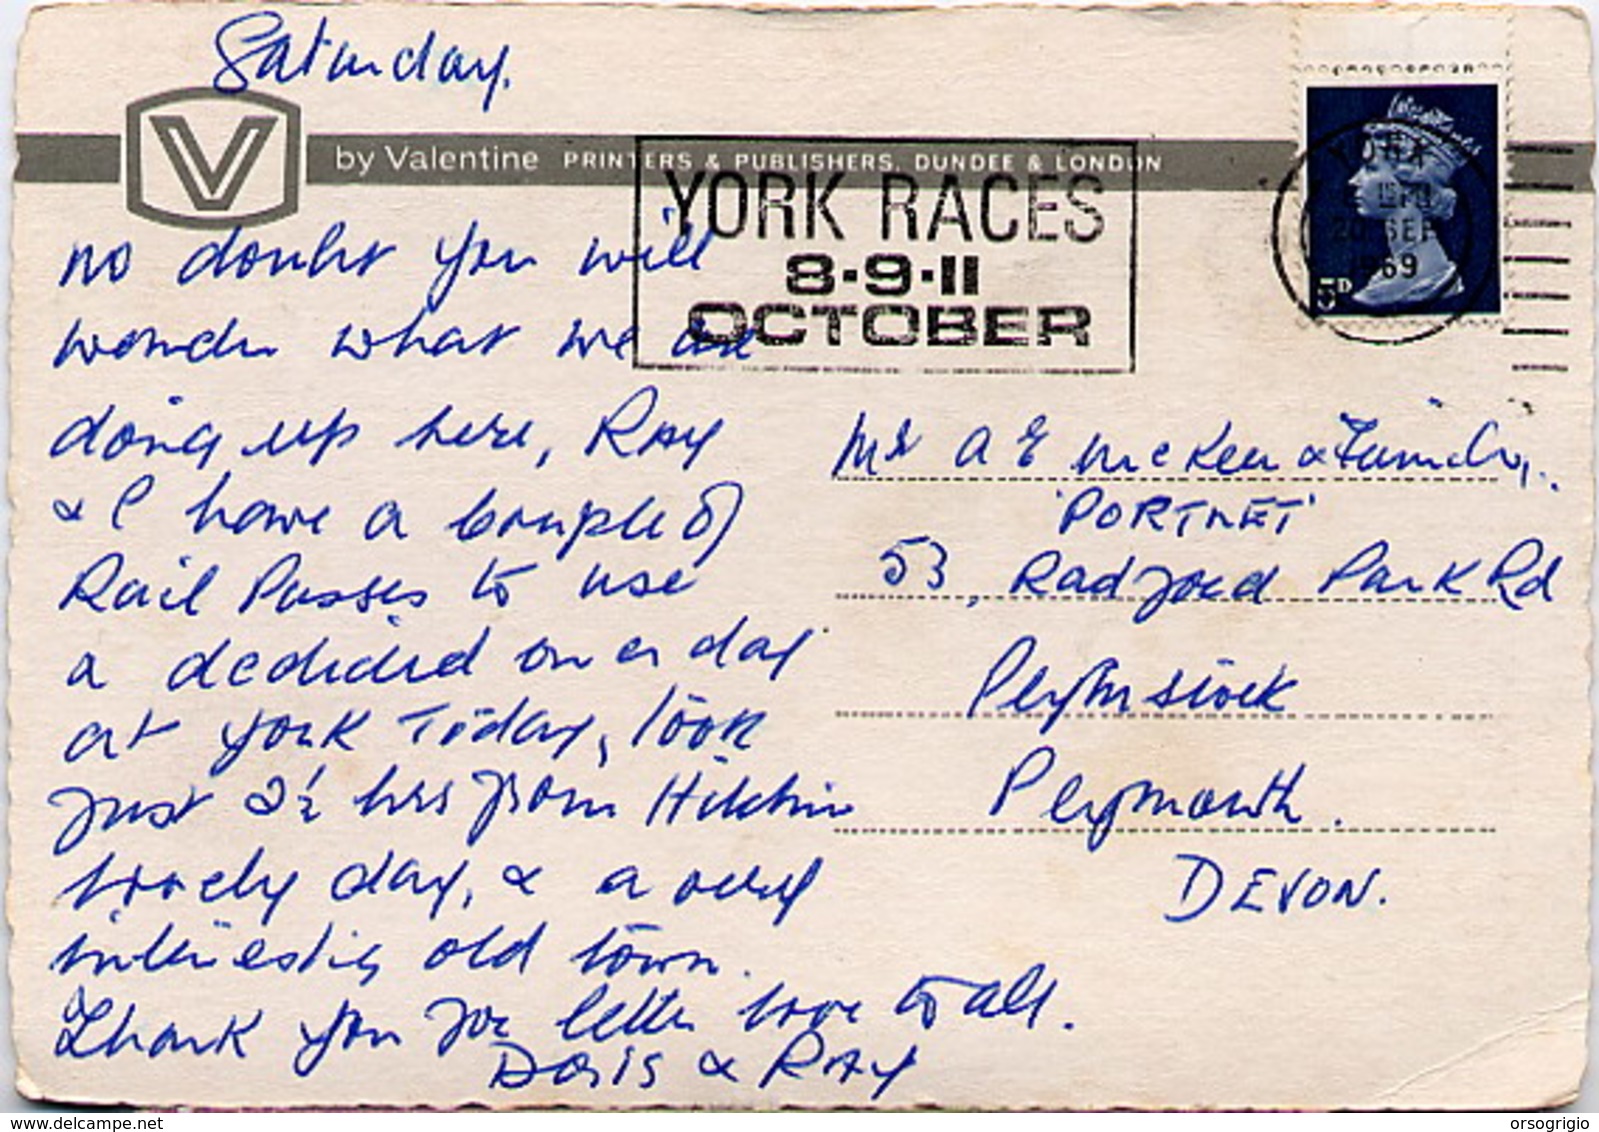 Saturday.
V
by Valentine PRINTERS & PUBLISHERS, DUNDEE & LONDON
YORK RACES
8·9·11
OCTOBER
YORK
20 SEP
1969
5D
no doubt you will
wonder what we are
doing up here, Ray
& I have a couple of
Rail Passes to use
& decided on a day
at York Today, look
just 2½ hrs from Hitchin
lovely day, & a very
interesting old town.
Thank you for letter love to all.
Doris & RAY
Mr A E McKeer & Family,
'PORTNET'
53, Radford Park Rd
Plymstock
Plymouth.
DEVON.
delcampe.net
orsogrigio